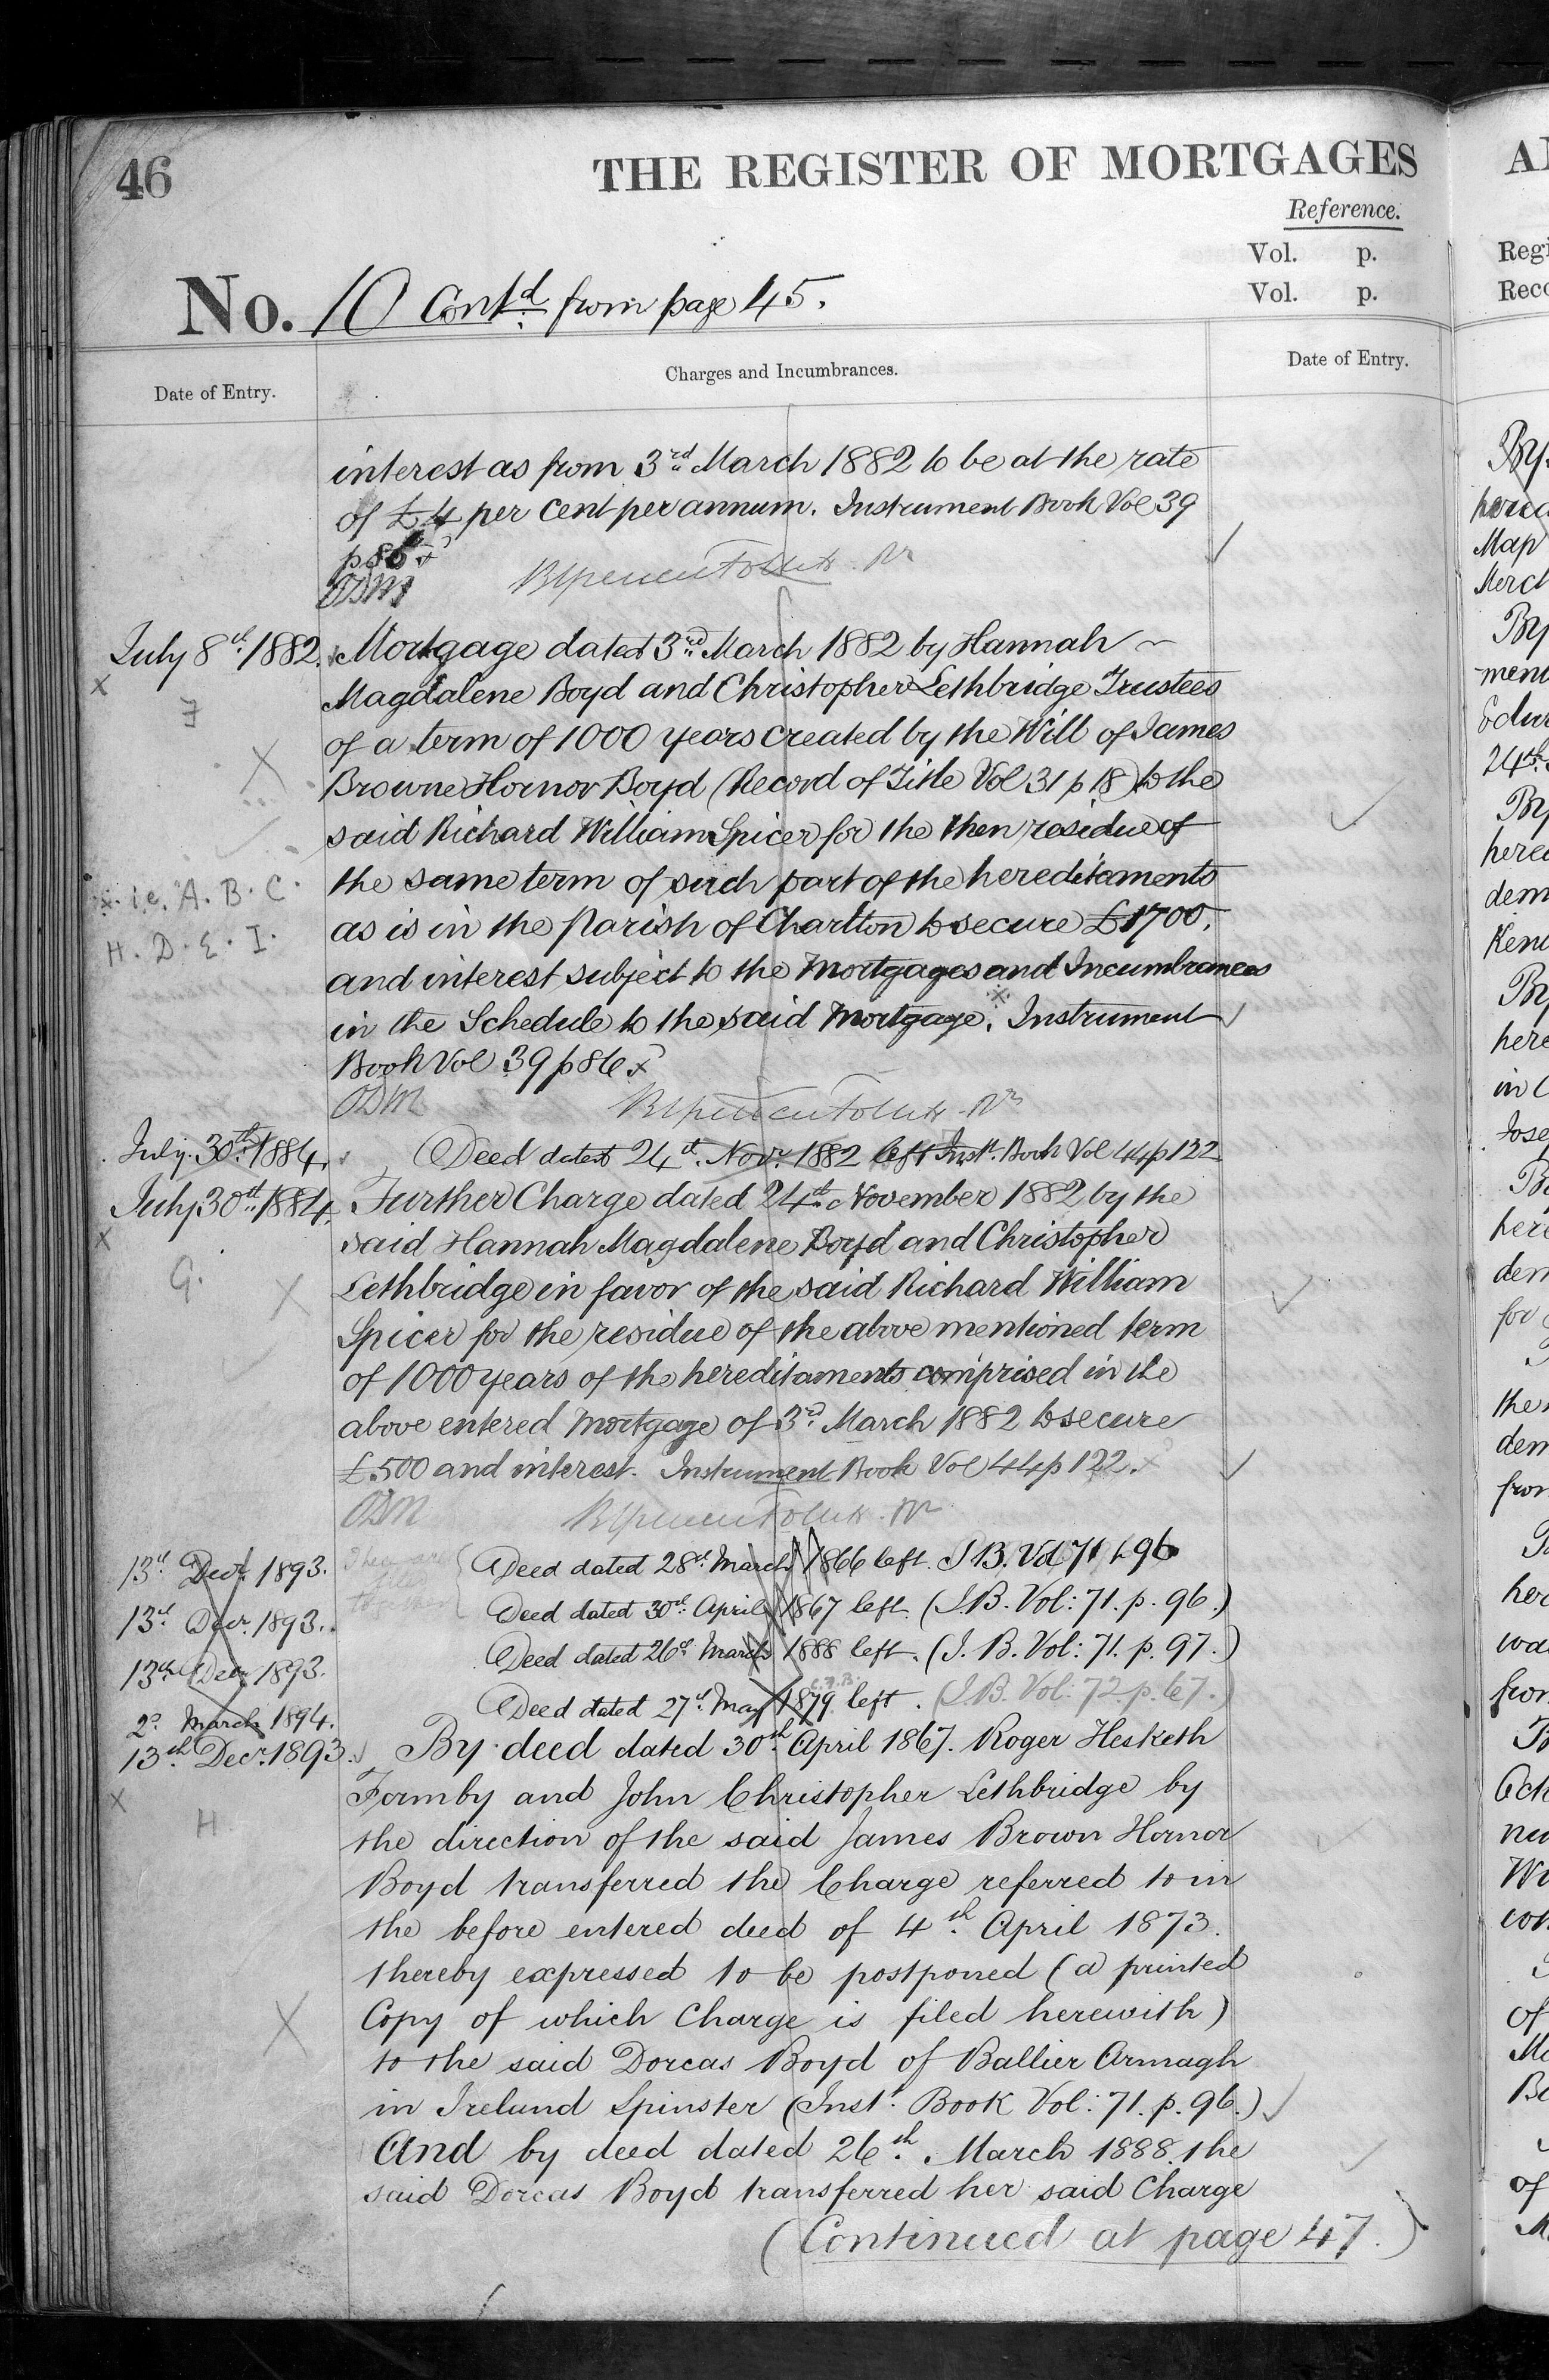 46
THE REGISTER OF MORTGAGES
Reference.
Vol. p.
Vol. p.
No. 10 Contd. from page 45.
Date of Entry.
Charges and Incumbrances.
Date of Entry.
interest as from 3rd March 1882 to be at the rate
of £4 per cent per annum. Instrument Book Vol 39
p 86
ODM
July 8th 1882. Mortgage dated 3rd March 1882 by Hannah
Magdalene Boyd and Christopher Lethbridge Trustees
F
of a term of 1000 years created by the Will of James
Browne Hornor Boyd (Record of Title Vol 31 p 18) to the
said Richard William Spicer for the then residue of
the same term of such part of the hereditaments
x i.e. A. B. C.
as is in the Parish of Charlton to secure £1700.
H. D. E. I.
and interest subject to the Mortgages and Incumbrances
in the Schedule to the said Mortgage. Instrument
Book Vol 39 p 86
ODM
July 30th 1884. Deed dated 24th Novr. 1882 left Inst. Book Vol 44 p 122
July 30th 1884. Further Charge dated 24th November 1882 by the
said Hannah Magdalene Boyd and Christopher
G.
Lethbridge in favor of the said Richard William
Spicer for the residue of the above mentioned term
of 1000 years of the hereditaments comprised in the
above entered Mortgage of 3rd. March 1882 to secure
£500 and interest. Instrument Book Vol 44 p 122.
ODM
13th Decr. 1893. Deed dated 28th March 1866 left. I.B. Vol 71 p 96
13th Decr. 1893. Deed dated 30th April 1867 left. (I.B. Vol: 71. p. 96.)
13th Decr 1893. Deed dated 26th March 1888 left. (I.B. Vol: 71. p. 97.)
2d March 1894. Deed dated 27th May 1879 left. (I.B. Vol: 72. p. 67.)
13th Decr. 1893. By deed dated 30th April 1867. Roger Hesketh
Formby and John Christopher Lethbridge by
H
the direction of the said James Brown Hornor
Boyd transferred the Charge referred to in
the before entered deed of 4th. April 1873.
thereby expressed to be postponed (a printed
Copy of which Charge is filed herewith)
to the said Dorcas Boyd of Ballier Armagh
in Ireland Spinster (Inst. Book Vol: 71. p. 96.)
And by deed dated 26th. March 1888. the
said Dorcas Boyd transferred her said Charge
(Continued at page 47.)